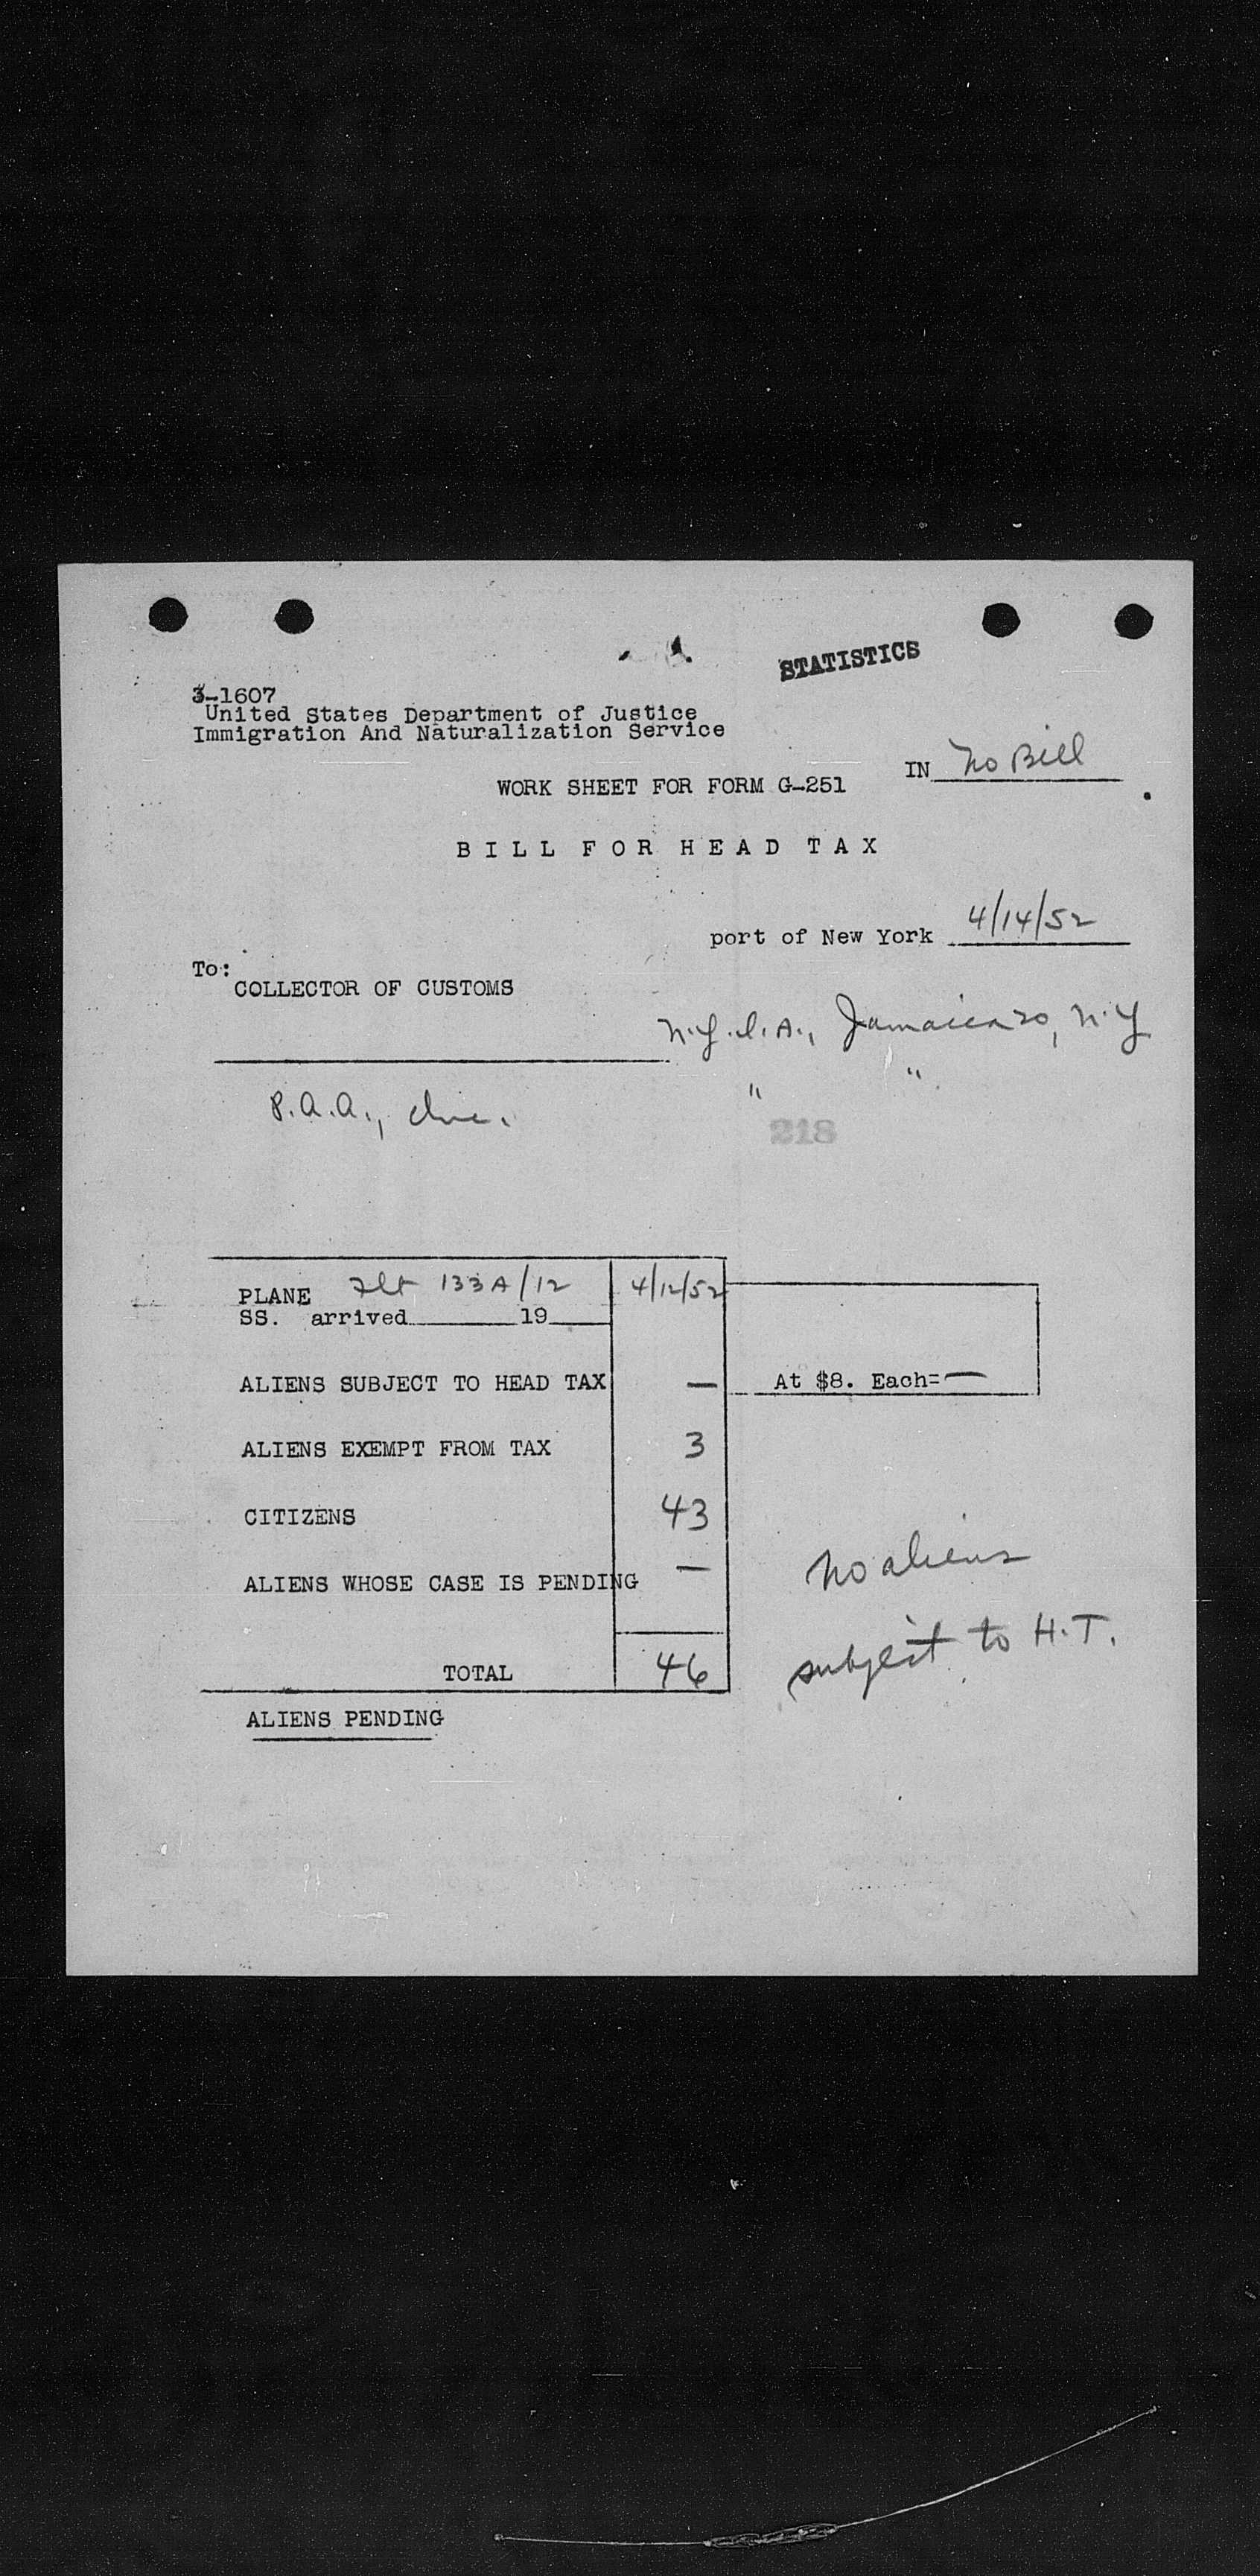 STATISTICS
3-1607
United States Department of Justice
Immigration And Naturalization Service
IN No Bill
WORK SHEET FOR FORM G-251
BILL FOR HEAD TAX
port of New York 4/14/52
To:
COLLECTOR OF CUSTOMS
N.Y.I.A., Jamaica 30, N.Y
" "
P.A.A., Inc.
218
PLANE Flt 133A/12 4/12/52
SS. arrived 19
ALIENS SUBJECT TO HEAD TAX — At $8. Each= —
ALIENS EXEMPT FROM TAX 3
CITIZENS 43
ALIENS WHOSE CASE IS PENDING —
No aliens
subject to H.T.
TOTAL 46
ALIENS PENDING